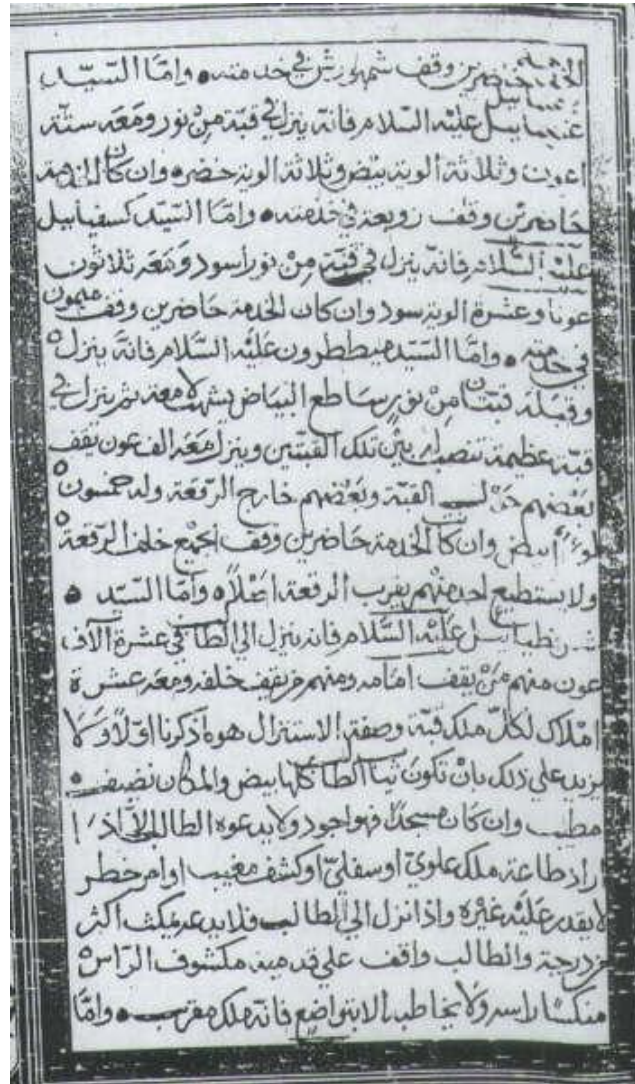 حاضرين وقف شمهورش في خدمته وامّا السّيّد
عنيائيل عليه السّلام فانه ينزل في قبّة مِنْ نور ومَعَه ستّة
اعون وثلاثة ألوية بيْض وثلاثة الوية خضره وان كان الخدمة
حَاضرين وقف زوبعة في خدمته وامّا السّيّد كسفيائيل
عليْه السّلام فانه ينزل في قبّة مِنْ نور أسود ومَعَه ثلاثون
عونا وعشرة الوية سود وان كان الخدمة حَاضرين وقف ميمون
في خدمته وامّا السّيّد ميططرون عَليْه السَّلام فانَّه ينزل
وقبله قبّتان مِنْ نورٍ ساطع البيَاض معه ثم ينزل في
قبّة عظيمة تنصب له بيْن تلك القبّتين وينزل مَعَه الف عون يقف
بَعْضهم حَوْل القبّة وبَعْضهم خارج الرّقعَة وله خمسون
لواء أبيض وان كان الخدمة حَاضرين وقف الجميْع خلف الرّقعة
ولا يستطيع احد منْهم يقرب الرقعة اصْلاً وامّا السّيّد
عَليْه السَّلام فانه ينزل الي الطالب في عشرة آلاف
عون منهم مَنْ يقف امَامه ومنهم مَن يقف خلفه ومَعَه عشرة
امْلاك لكلّ ملك قبّة وصفة الاستنزال هو ما ذكرنا اوّلاً وَلا
يزيد علي ذلك بانْ تكونَ ثياب الطالب كلها بيض والمكان نضيف
مطيب وان كان مسجدًا فهو اجود ولا يدعوه الطالب الاّ اذا
اراد طاعة ملك علويّ او سفليّ او كشف مغيب او امر خطر
لا يقدر عَليْه غيْره واذا نزل الي الطالب فلا يدعه يمكث اكثر
من درجة والطالب واقف علي قدميه مكشوف الرّاسْ
منكسًا راسه وَلا يخاطبه الا بتواضع فانه ملك مقرب وامّا